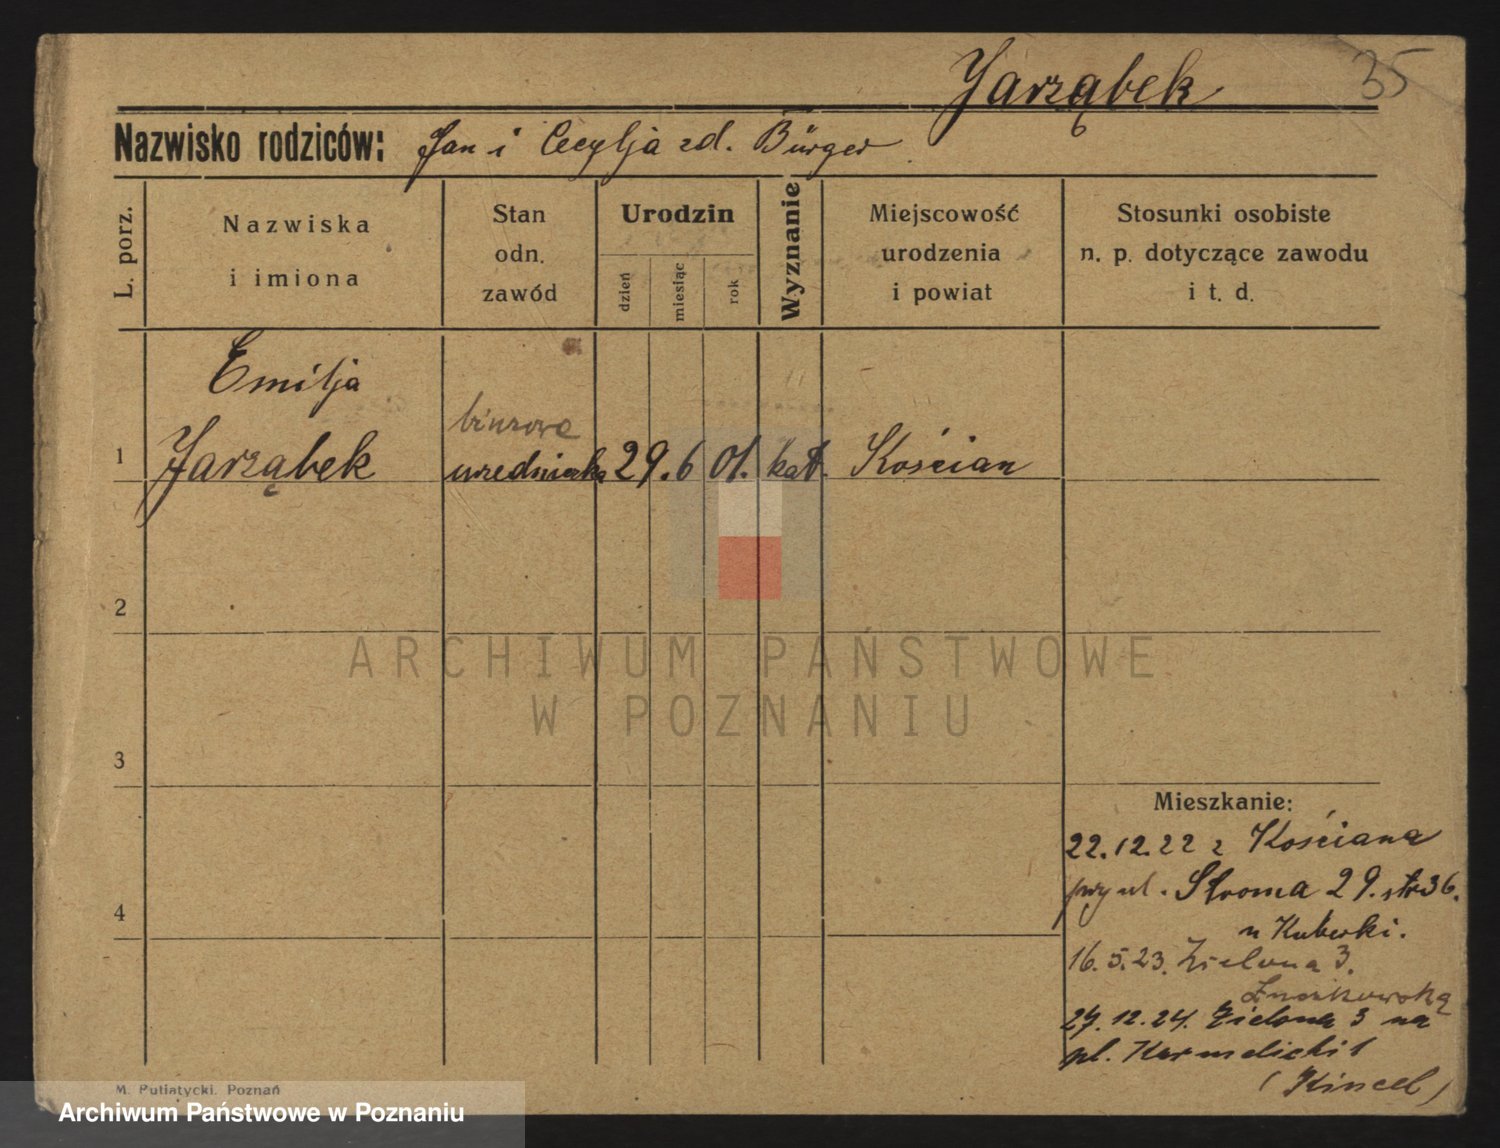 Jarząbek 35
Nazwisko rodziców: Jan i Cecylja zd. Bürger
L. porz.
Nazwiska
i imiona
Stan
odn.
zawód
Urodzin
dzień
miesiąc
rok
Wyznanie
Miejscowość
urodzenia
i powiat
Stosunki osobiste
n. p. dotyczące zawodu
i t. d.
Emilja
biurowa
1 Jarząbek urzedniczka 29. 6 01. kat. Kościan
2
ARCHIWUM PAŃSTWOWE
W POZNANIU
3
Mieszkanie:
22.12.22 z Kościana
przy ul. Stroma 29. str 36.
4
u Kuberki.
16.5.23. Zielona 3.
27.12.24. Zielona 3 na
pl. Karmelicki 1
(Kincel)
M. Putiatycki. Poznań
Archiwum Państwowe w Poznaniu